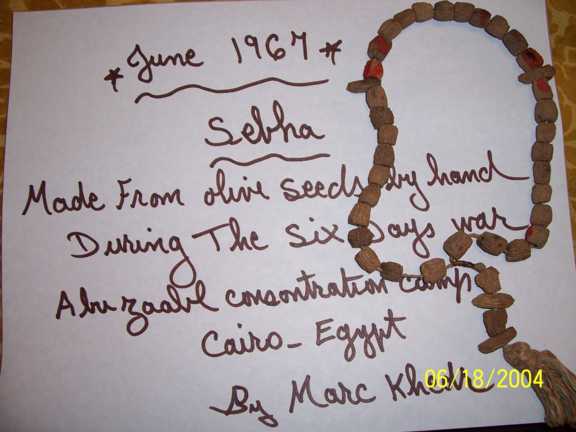 * June 1967 *
Sebha
Made From olive seeds by hand
During The Six Days war
Abuzaabl consontration camp
Cairo - Egypt
By Marc Khedr
06/18/2004